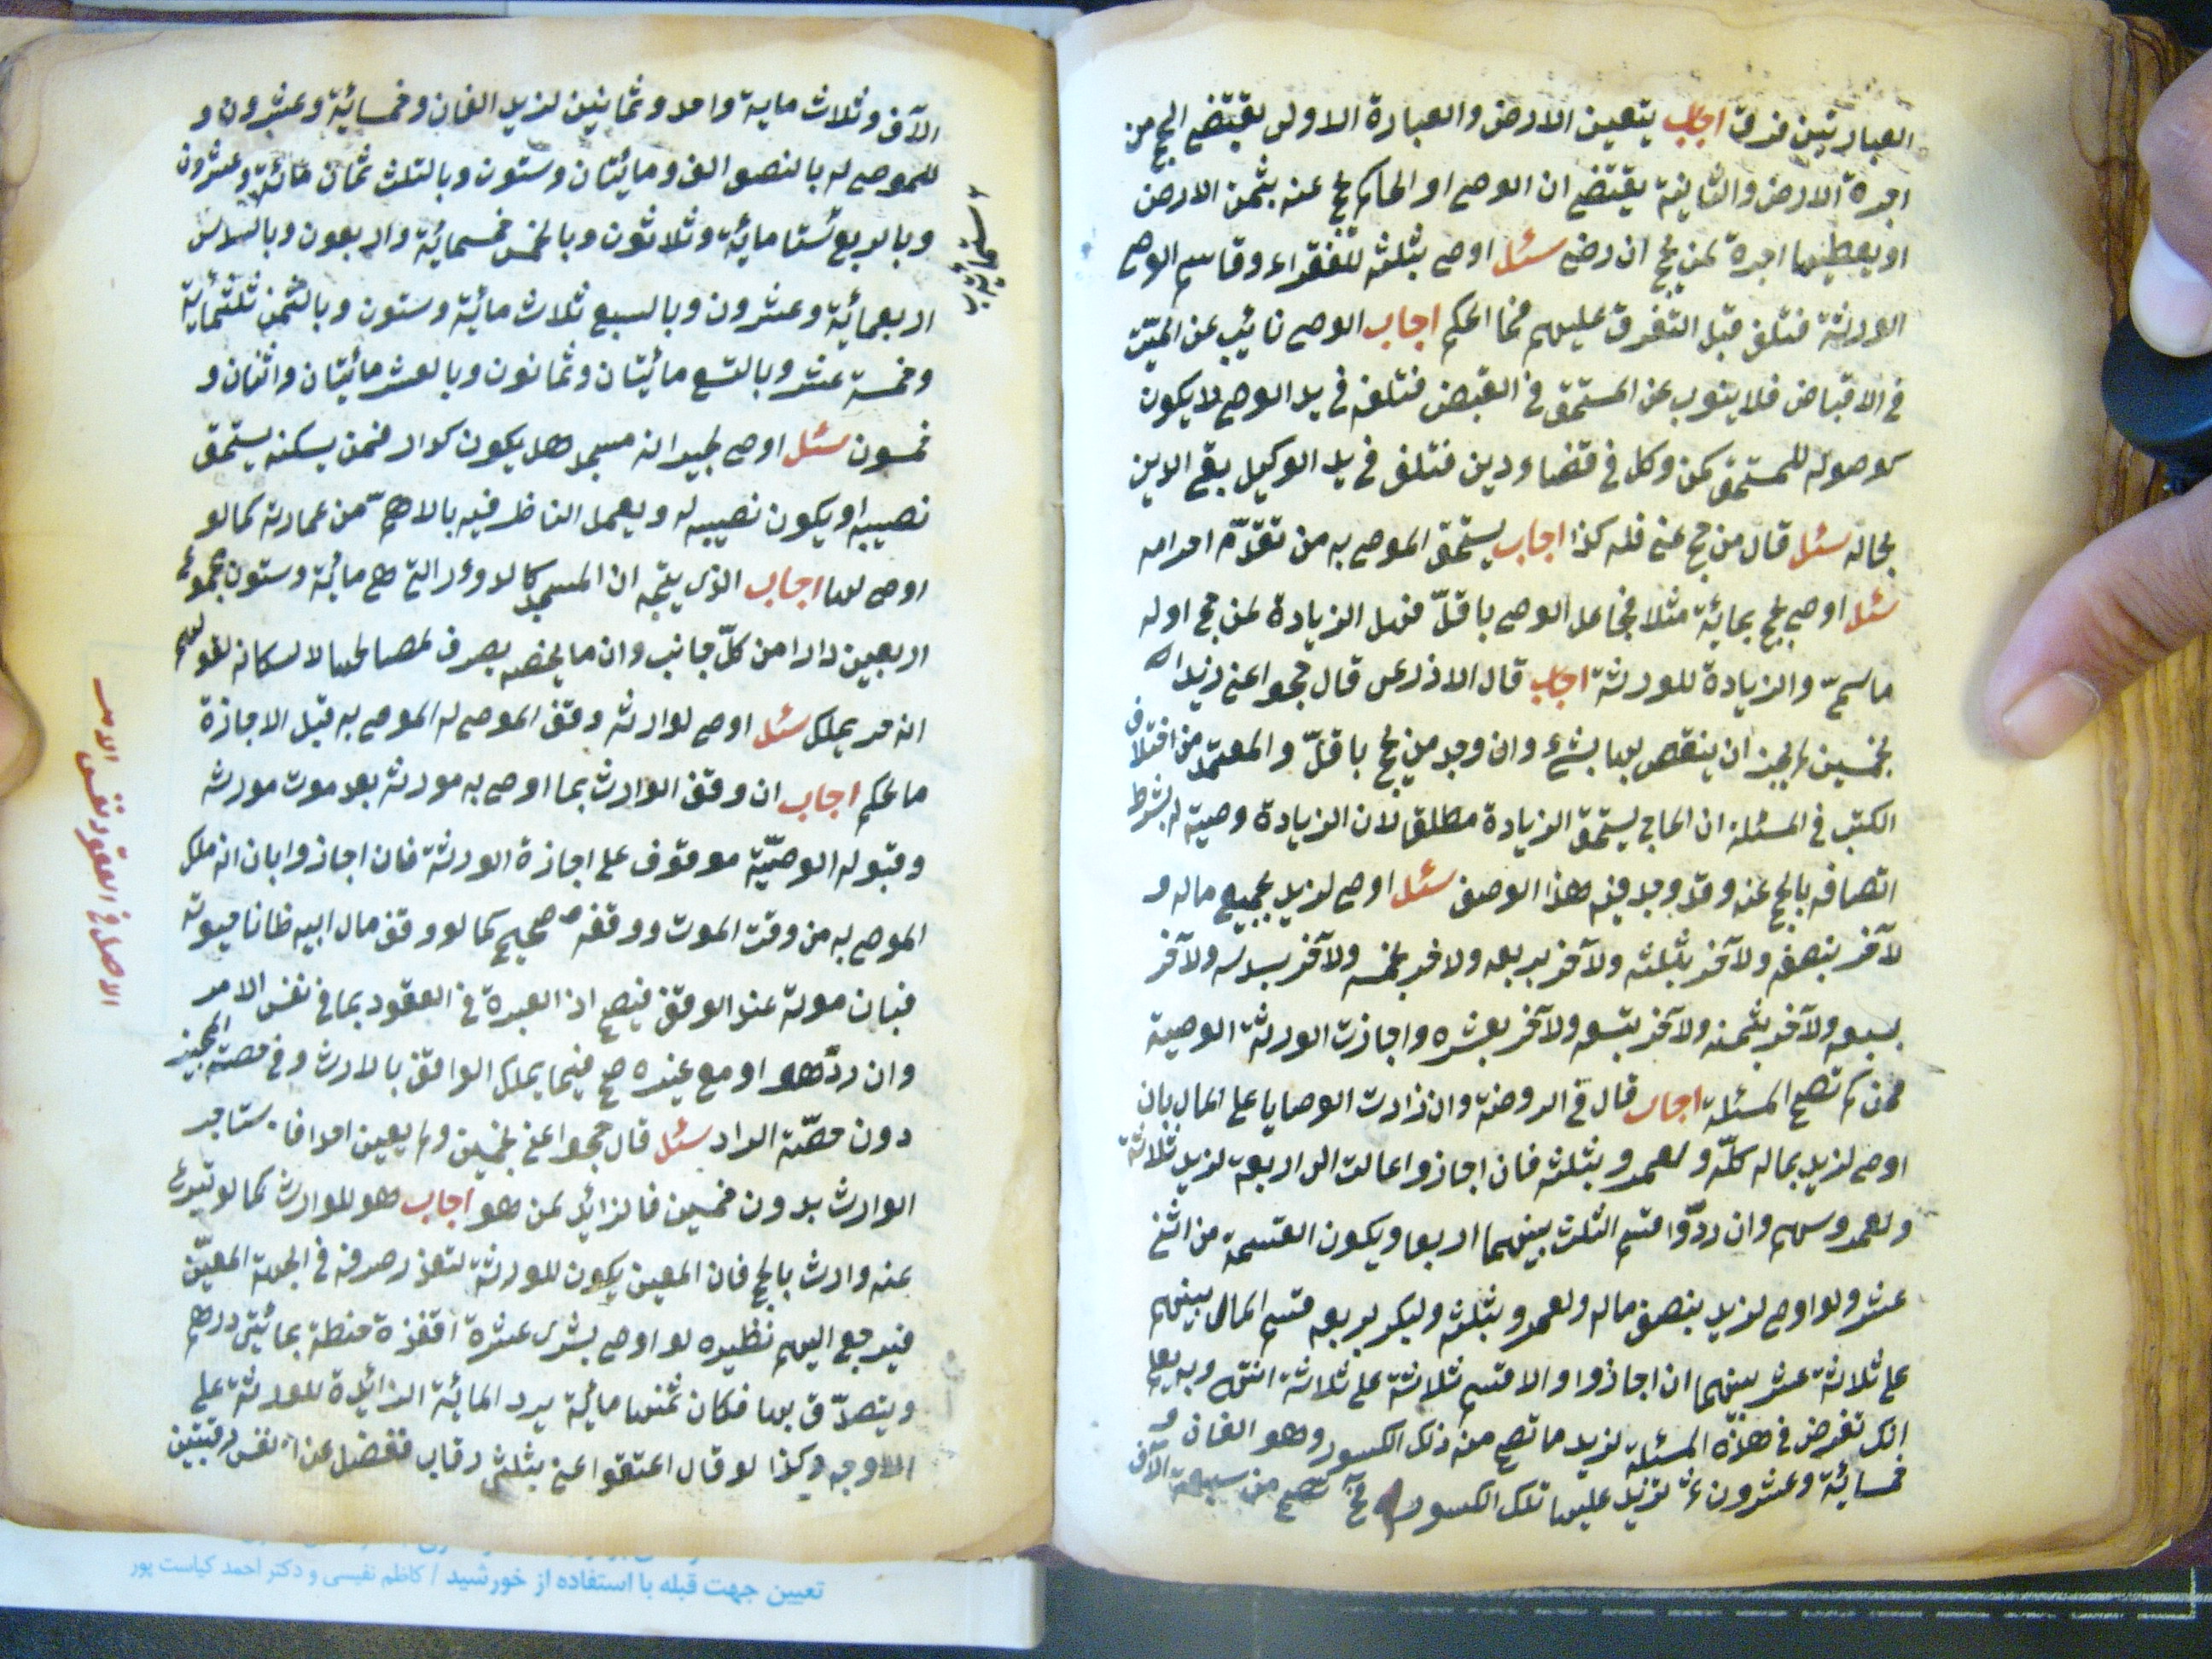 العبارتين فرق اجاب يتعين الارض والعبارة الاولى يقتضي الحج من
اجرة الارض والثانية يقتضي ان الوصي او الحاكم يحج عنه بثمن الارض
او يعطيها اجرة لمن يحج ان رضي سئل اوصى بثلثه للفقراء وقاسم الوصي
الورثة فتلف قبل التفرق عليهم فما الحكم اجاب الوصي نائب عن الميت
في الاقباض فلا ينوب عن المستحق في القبض فتلفه في يد الوصي لا يكون
كوصوله للمستحق كمن وكل في قضاء دين فتلف في يد الوكيل بقي الدين
بحاله سئل قال من حج عني فله كذا اجاب يستحق الموصى به من تقدم احرامه
سئل اوصى بحج بمائة مثلا فجاعل الوصي باقل فهل الزيادة لمن حج اوله
ما سمي والزيادة للورثة اجاب قال الاذرعي قال حجوا عني زيدا
بخمسين لم يجز ان ينقص بها بشيء وان وجد من يحج باقل والمعتمد من اختلاف
الكتب في المسئلة ان الحاج يستحق الزيادة مطلقا لان الزيادة وصية له بشرط
اتصافه بالحج عنه وقد وجد فيه هذا الوصف سئل اوصى لزيد بجميع ماله و
لآخر بنصفه ولآخر بثلثه ولآخر بربعه ولاخر بخمسه ولآخر بسدسه ولآخر
بسبعه ولآخر بثمنه ولآخر بتسعه ولآخر بعشره واجازت الورثة الوصية
فمن كم تصح المسئلة اجاب قال في الروضة وان زادت الوصايا على المال بان
اوصى لزيد بماله كله ولعمرو بثلثه فان اجازوا عالت الى اربعة لزيد ثلاثة
ولعمرو سهم وان ردوا قسم الثلث بينهما اربعا ويكون القسمة من اثني
عشر ولو اوصى لزيد بنصف ماله ولعمرو بثلثه ولبكر بربعه قسم المال بينهم
على ثلاثة عشر سهما ان اجازوا والا قسم ثلاثة على ثلاثة انتهى وبه يعلم
انك تفرض في هذه المسئلة لزيد ما تصح منه ذلك الكسور وهو الفان و
خمسائة وعشرون ثم تزيد عليها تلك الكسور فح تصح من سبعة الآف
الآف وثلاث ماية واحد وثمانين لزيد الفان وخمسائة وعشرون و
للموصى له بالنصف الف ومايتان وستون وبالثلث ثمان مائة وعشرون
وبالربع ستمائة وثلاثون وبالخمس خمسمائة واربعون وبالسدس
اربعمائة وعشرون وبالسبع ثلاث مائة وستون وبالثمن ثلثمائة
وخمسة عشر وبالتسع مأيتان وثمانون وبالعشر مأيتان واثنان و
خمسون سئل اوصى لجيرانه مسجد هل يكون كدار فمن يسكنه يستحق
نصيبه او يكون نصيبه له ويعمل الناظر فيه بالاهم من عمارته كما لو
اوصى لها اجاب الذي يتجه ان المسجد كالدور التي هي مائة وستون
اربعين دارا من كل جانب وان ما يخصه يصرف لمصالحها لا لسكانه
انه حر يملك سئل اوصى لوارثه وقف الموصى له الموصى به قبل الاجازة
ما الحكم اجاب ان وقف الوارث بما اوصى به مورثه بعد موت مورثه
وقبوله الوصية موقوف على اجازة الورثة فان اجازوا بان انه ملك
الموصى به من وقت الموت ووقفه صحيح كما لو وقف مال ابيه ظانا حيوته
فبان موته عند الوقف فيصح اذ العبرة في العقود بما في نفس الامر
وان رد هو او مع غيره صح فيما يملك الواقف بالارث وفي حصة المجيز
دون حصة الراد سئل قال حجوا عني بخمسين ولم يعين احدا فاستاجر
الوارث بدون خمسين فالزائد لمن هو اجاب هو للوارث كما لو تبرع
عنه وارث بالحج فان المعين يكون للورثة لتعذر صرفه في الجهة المعين
فيرجع اليهم نظيره لو اوصى بشرى عشرة اقفزة حنطة بمائتي درهم
ويتصدق بها فكان ثمنها مائة يرد المائة الزائدة للورثة على
الاوجه وكذا لو قال اعتقوا عني بثلثي رقاب ففضل عن انفس رقبتين
الاصل في العقود نفس الامر
تعیین جهت قبله با استفاده از خورشید / کاظم نفیسی و دکتر احمد کیاست پور